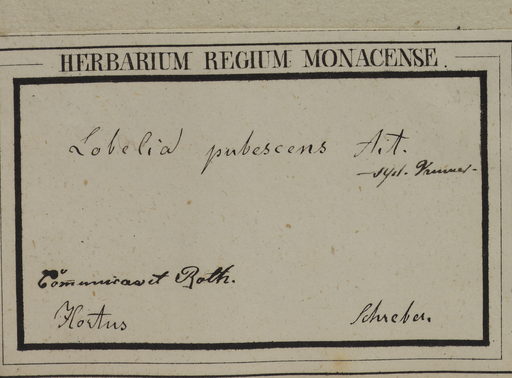 HERBARIUM REGIUM MONACENSE.
Lobelia pubescens Ait.
Com̄unicavit Roth.
Hortus Schreber.